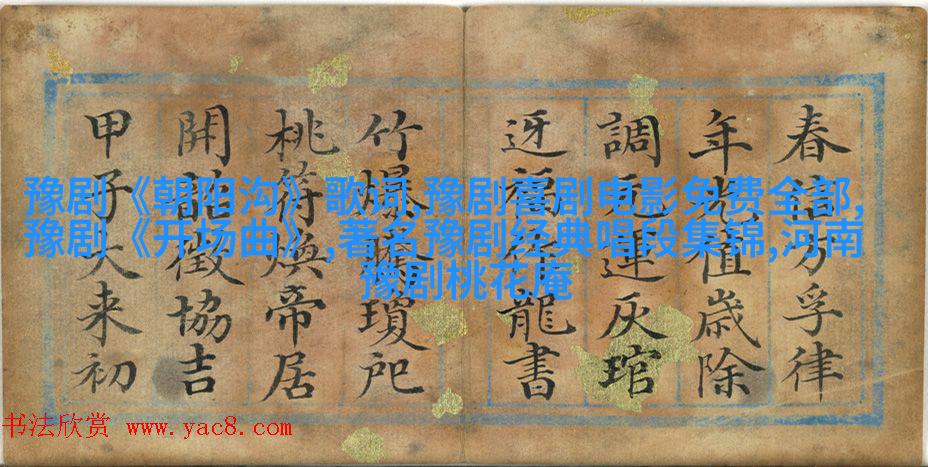 豫剧《朝阳沟》歌词,豫剧喜剧电影免费全部,
豫剧《开场曲》,著名豫剧经典唱段集锦,河南
豫剧桃花庵
春孚律
年光值歲除
調元運灰琯
迓福龍書
竹爆瓊戺
桃符煥帝居
開徵協吉
甲子大来初
书法欣赏 www.yac8.com